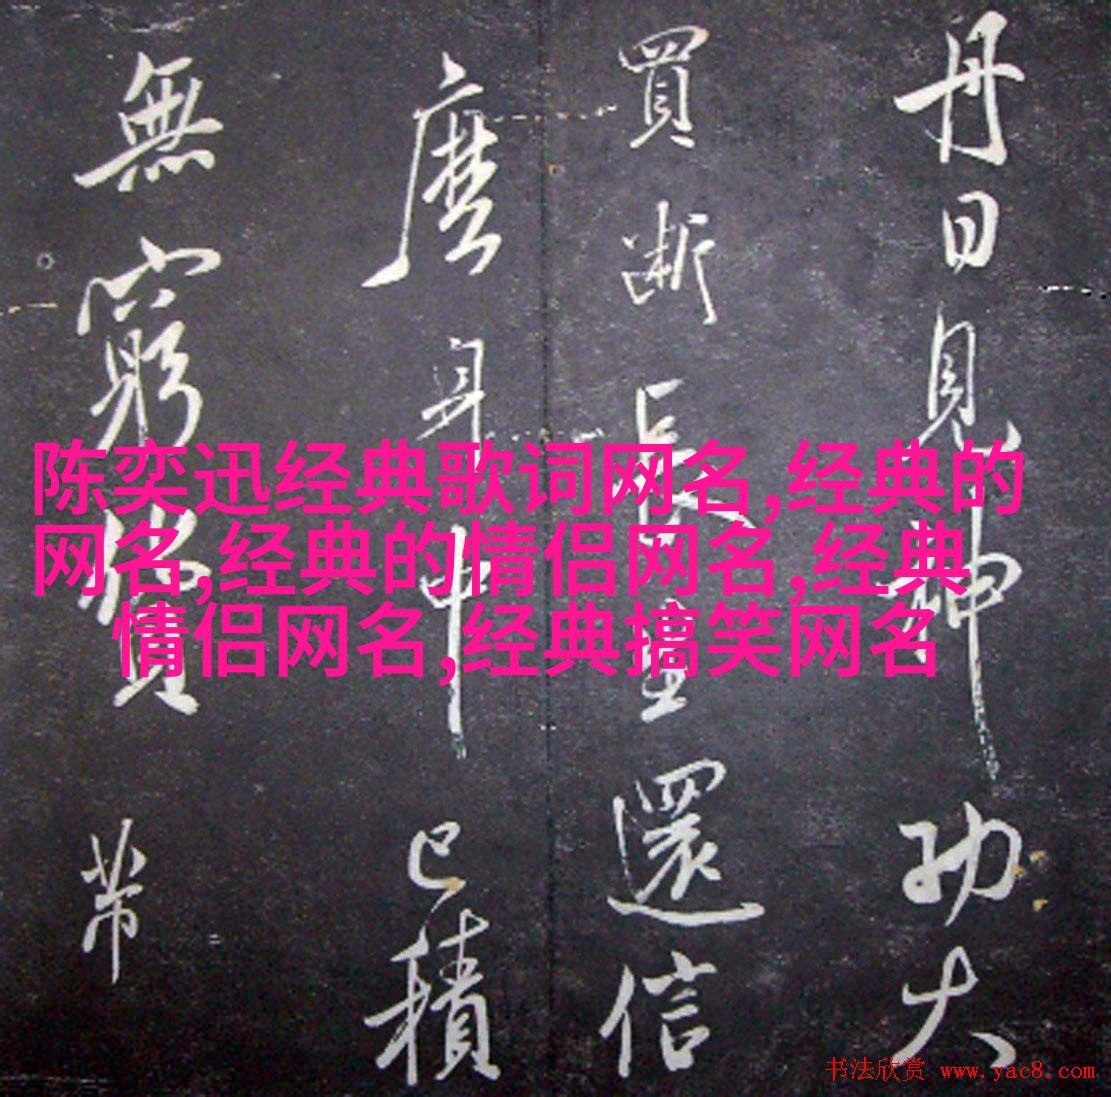 丹日見神功大
買斷長生還信
麼身中已積
無窮帶
陈奕迅经典歌词网名,经典的
网名,经典的情侣网名,经典
情侣网名,经典搞笑网名
书法欣赏 www.yac8.com